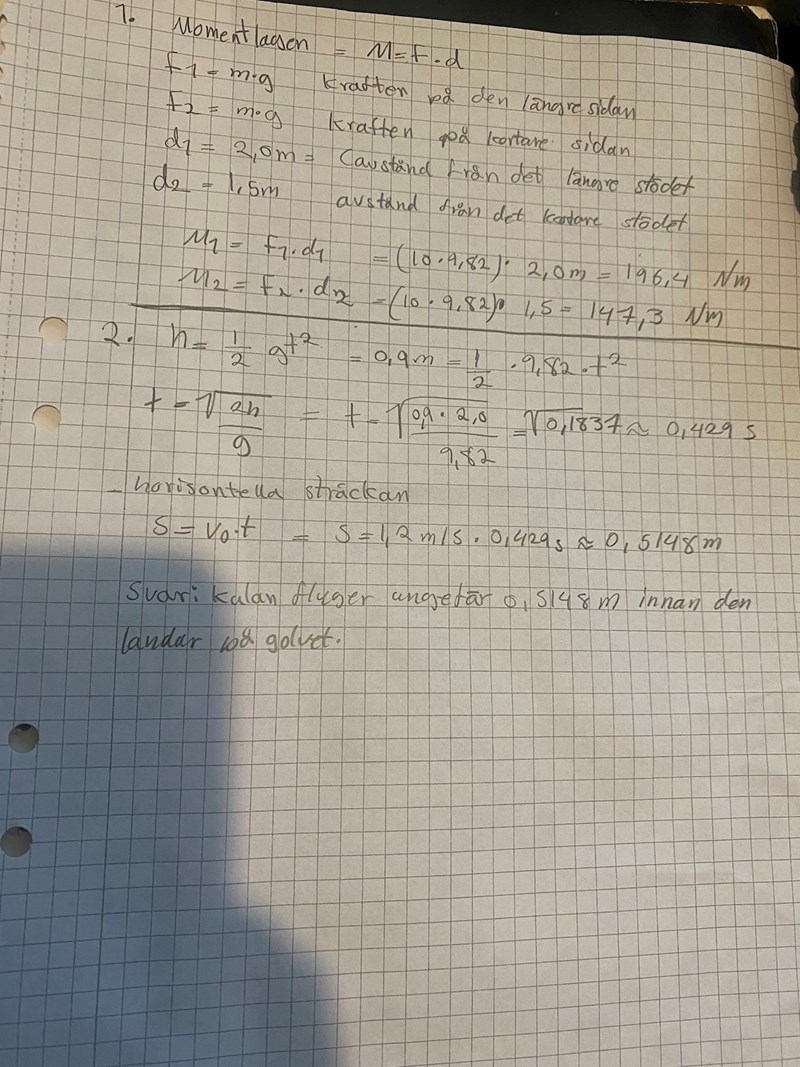 1. Momentlagen = M = F · d
F1 = m·g kraften på den längre sidan
F2 = m·g kraften på kortare sidan
d1 = 2,0m = (avstånd från det längre stödet
d2 = 1,5m avstånd från det kortare stödet
M1 = F1·d1 = (10·9,82)· 2,0m = 196,4 Nm
M2 = F2·d2 = (10·9,82)· 1,5 = 147,3 Nm
2. h = 1/2 gt² = 0,9m = 1/2 · 9,82 · t²
t = √2h/g = t = √0,9·2,0/9,82 = √0,1837 ≈ 0,429 s
- horisontella sträckan
S = V0·t = S = 1,2 m/s · 0,429s ≈ 0,5148m
Svar: kulan flyger ungefär 0,5148 m innan den
landar på golvet.